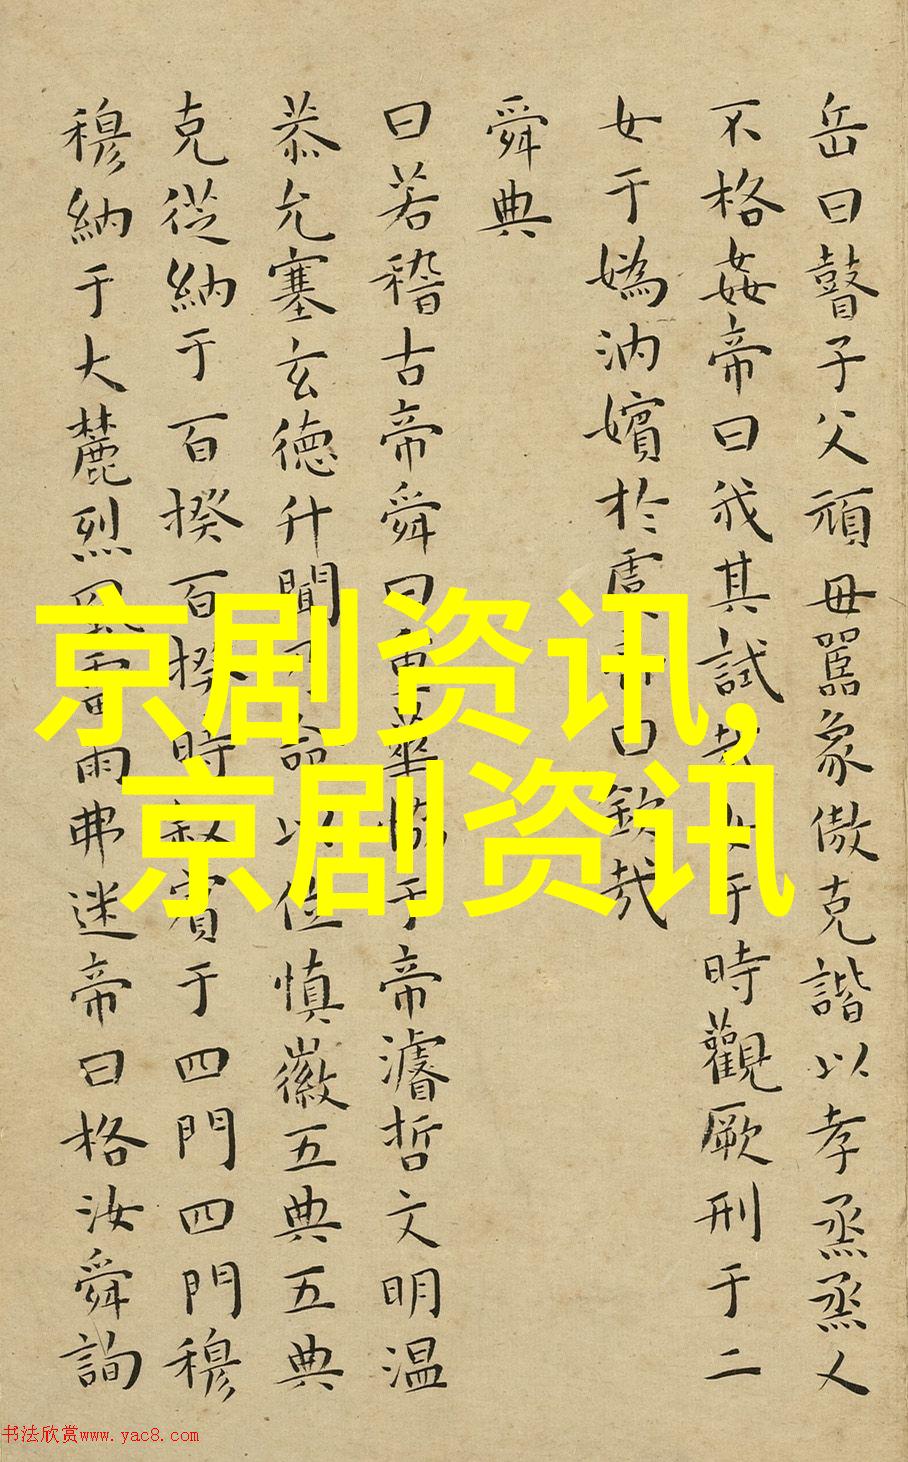 岳曰瞽子父頑毋嚚象傲克諧以孝烝烝乂
不格姦帝曰我其試哉女于時觀厥刑于二
女于媯汭嬪於虞帝曰欽哉
舜典
曰若稽古帝舜曰重華協于帝濬哲文明温
恭允塞玄德升聞乃命以位慎徽五典五典
克從納于百揆百揆時敘賓于四門四門穆
穆納于大麓烈風雷雨弗迷帝曰格汝舜詢
京剧资讯,
京剧资讯
书法欣赏www.yac8.com